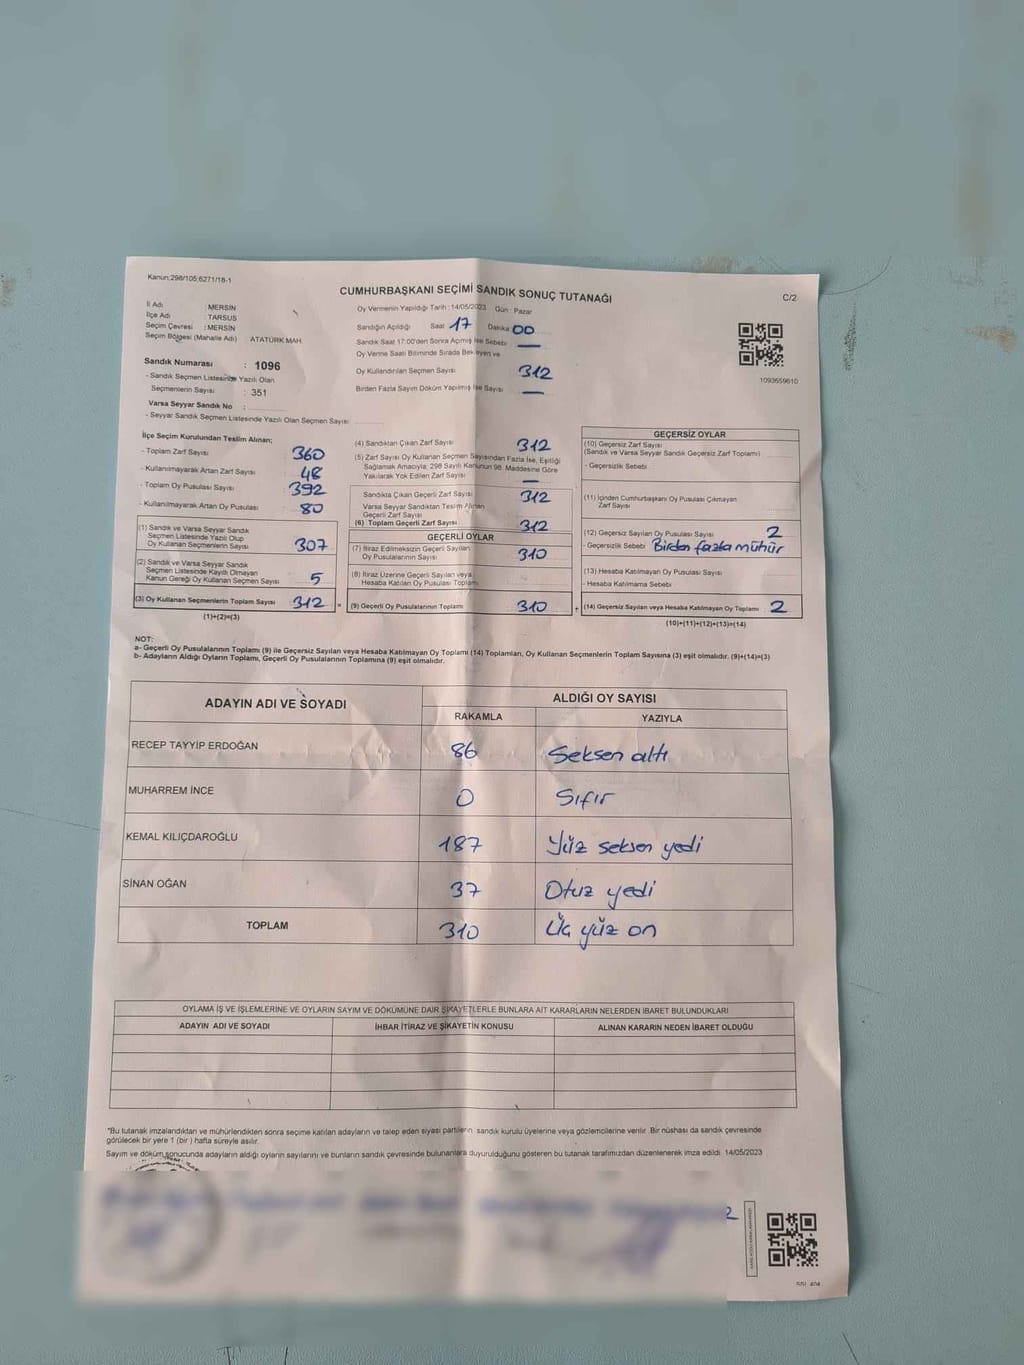 Kanun:298/105;6271/18-1
CUMHURBAŞKANI SEÇİMİ SANDIK SONUÇ TUTANAĞI
C/2
İl Adı : MERSİN
İlçe Adı : TARSUS
Seçim Çevresi : MERSİN
Seçim Bölgesi (Mahalle Adı) ATATÜRK MAH.
Sandık Numarası : 1096
- Sandık Seçmen Listesinde Yazılı Olan
Seçmenlerin Sayısı : 351
Varsa Seyyar Sandık No :
- Seyyar Sandık Seçmen Listesinde Yazılı Olan Seçmen Sayısı :
Oy Vermenin Yapıldığı Tarih : 14/05/2023 Gün : Pazar
Sandığın Açıldığı Saat 17 Dakika 00
Sandık Saat 17:00'den Sonra Açılmış İse Sebebi —
Oy Verme Saati Bitiminde Sırada Bekleyen ve
Oy Kullandırılan Seçmen Sayısı 312
Birden Fazla Sayım Döküm Yapılmış İse Sayısı —
1093659610
İlçe Seçim Kurulundan Teslim Alınan;
- Toplam Zarf Sayısı 360
- Kullanılmayarak Artan Zarf Sayısı 48
- Toplam Oy Pusulası Sayısı 392
- Kullanılmayarak Artan Oy Pusulası 80
(1) Sandık ve Varsa Seyyar Sandık
Seçmen Listesinde Yazılı Olup
Oy Kullanan Seçmenlerin Sayısı 307
(2) Sandık ve Varsa Seyyar Sandık
Seçmen Listesinde Kayıtlı Olmayan
Kanun Gereği Oy Kullanan Seçmen Sayısı 5
(3) Oy Kullanan Seçmenlerin Toplam Sayısı 312 =
(1)+(2)=(3)
(4) Sandıktan Çıkan Zarf Sayısı 312
(5) Zarf Sayısı Oy Kullanan Seçmen Sayısından Fazla İse, Eşitliği
Sağlamak Amacıyla; 298 Sayılı Kanunun 98. Maddesine Göre
Yakılarak Yok Edilen Zarf Sayısı —
Sandıkta Çıkan Geçerli Zarf Sayısı 312
Varsa Seyyar Sandıktan Teslim Alınan
Geçerli Zarf Sayısı
(6) Toplam Geçerli Zarf Sayısı 312
GEÇERLİ OYLAR
(7) İtiraz Edilmeksizin Geçerli Sayılan
Oy Pusulalarının Sayısı 310
(8) İtiraz Üzerine Geçerli Sayılan veya
Hesaba Katılan Oy Pusulası Toplamı
(9) Geçerli Oy Pusulalarının Toplamı 310 +
GEÇERSİZ OYLAR
(10) Geçersiz Zarf Sayısı
(Sandık ve Varsa Seyyar Sandık Geçersiz Zarf Toplamı)
- Geçersizlik Sebebi
(11) İçinden Cumhurbaşkanı Oy Pusulası Çıkmayan
Zarf Sayısı
(12) Geçersiz Sayılan Oy Pusulası Sayısı 2
- Geçersizlik Sebebi Birden fazla mühür
(13) Hesaba Katılmayan Oy Pusulası Sayısı
- Hesaba Katılmama Sebebi
(14) Geçersiz Sayılan veya Hesaba Katılmayan Oy Toplamı 2
(10)+(11)+(12)+(13)=(14)
NOT:
a- Geçerli Oy Pusulalarının Toplamı (9) ile Geçersiz Sayılan veya Hesaba Katılmayan Oy Toplamı (14) Toplamları, Oy Kullanan Seçmenlerin Toplam Sayısına (3) eşit olmalıdır. (9)+(14)=(3)
b- Adayların Aldığı Oyların Toplamı, Geçerli Oy Pusulalarının Toplamına (9) eşit olmalıdır.
ADAYIN ADI VE SOYADI ALDIĞI OY SAYISI
RAKAMLA YAZIYLA
RECEP TAYYİP ERDOĞAN 86 Seksen altı
MUHARREM İNCE 0 Sıfır
KEMAL KILIÇDAROĞLU 187 Yüz seksen yedi
SİNAN OĞAN 37 Otuz yedi
TOPLAM 310 Üç yüz on
OYLAMA İŞ VE İŞLEMLERİNE VE OYLARIN SAYIM VE DÖKÜMÜNE DAİR ŞİKAYETLERLE BUNLARA AİT KARARLARIN NELERDEN İBARET BULUNDUKLARI
ADAYIN ADI VE SOYADI İHBAR İTİRAZ VE ŞİKAYETİN KONUSU ALINAN KARARIN NEDEN İBARET OLDUĞU
*Bu tutanak imzalandıktan ve mühürlendikten sonra seçime katılan adayların ve talep eden siyasi partilerin sandık kurulu üyelerine veya gözlemcilerine verilir. Bir nüshası da sandık çevresinde
görülecek bir yere 1 (bir ) hafta süreyle asılır.
Sayım ve döküm sonucunda adayların aldığı oyların sayılarını ve bunların sandık çevresinde bulunanlara duyurulduğunu gösteren bu tutanak tarafımızdan düzenlenerek imza edildi. 14/05/2023